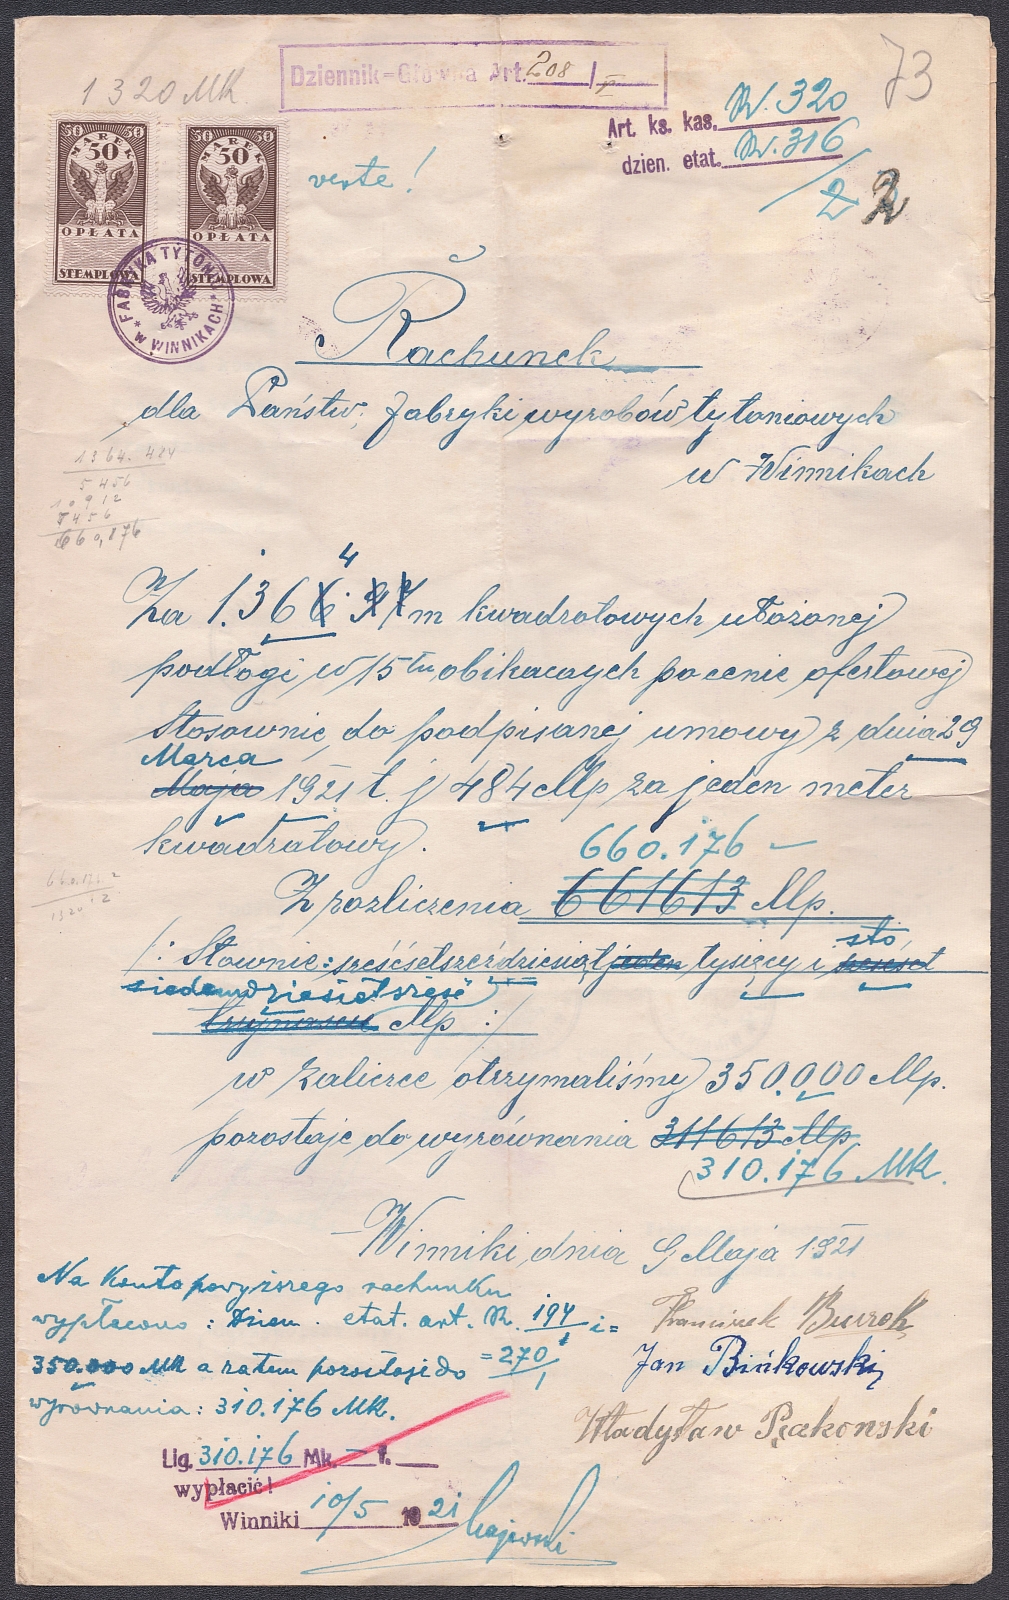 1320 Mk.
Dziennik-Główna Art. 208/I
73
Art. ks. kas. R. 320
dzien. etat. R. 316
/2 2
verte!
50 50
MAREK
50
OPŁATA
STEMPLOWA
50 50
MAREK
50
OPŁATA
STEMPLOWA
FABRYKA TYTONIU
* W WINNIKACH *
Rachunek
dla Państw. Fabryki wyrobów tytoniowych
w Winnikach
1364.484
5456
10912
5456
660,176
4
Za 1.366 m kwadratowych ułożonej
podłogi w 15tu obikacyach po cenie ofertowej
stosownie do podpisanej umowy z dnia 29
Marca
Maja 1921 t. j 484 Mp za jeden meter
kwadratowy.
660.176
Z rozliczenia 661613 Mp.
sto
/: Słownie: sześćsetsześćdziesiąt jeden tysięcy i sześćset
siedemdziesiątsześć
trzynaście Mp :/
w zaliczce otrzymaliśmy 350.000 Mp.
pozostaje do wyrównania 311613 Mp.
310.176 Mk.
Winniki, dnia 9 Maja 1921
Na konto powyższego rachunku
wypłacono: Dzien. etat. art. R. 194/1 i =
350.000 Mk a zatem pozostaje do = 270/1
wyrównania: 310.176 Mk.
Franciszek Burek
Jan Bińkowski
Władysław Rakowski
Lig. 310.176 Mk. — f.
wypłacić!
Winniki 10/5 1921